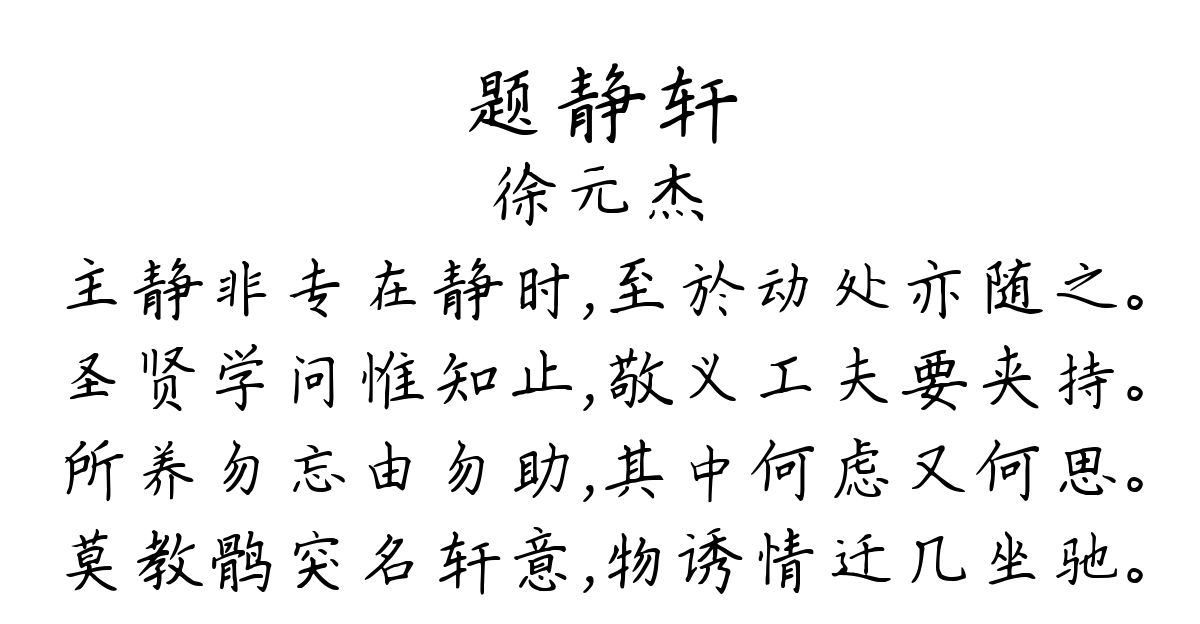 题静轩
徐元杰
主静非专在静时,至於动处亦随之。
圣贤学问惟知止,敬义工夫要夹持。
所养勿忘由勿助,其中何虑又何思。
莫教鹘突名轩意,物诱情迁几坐驰。